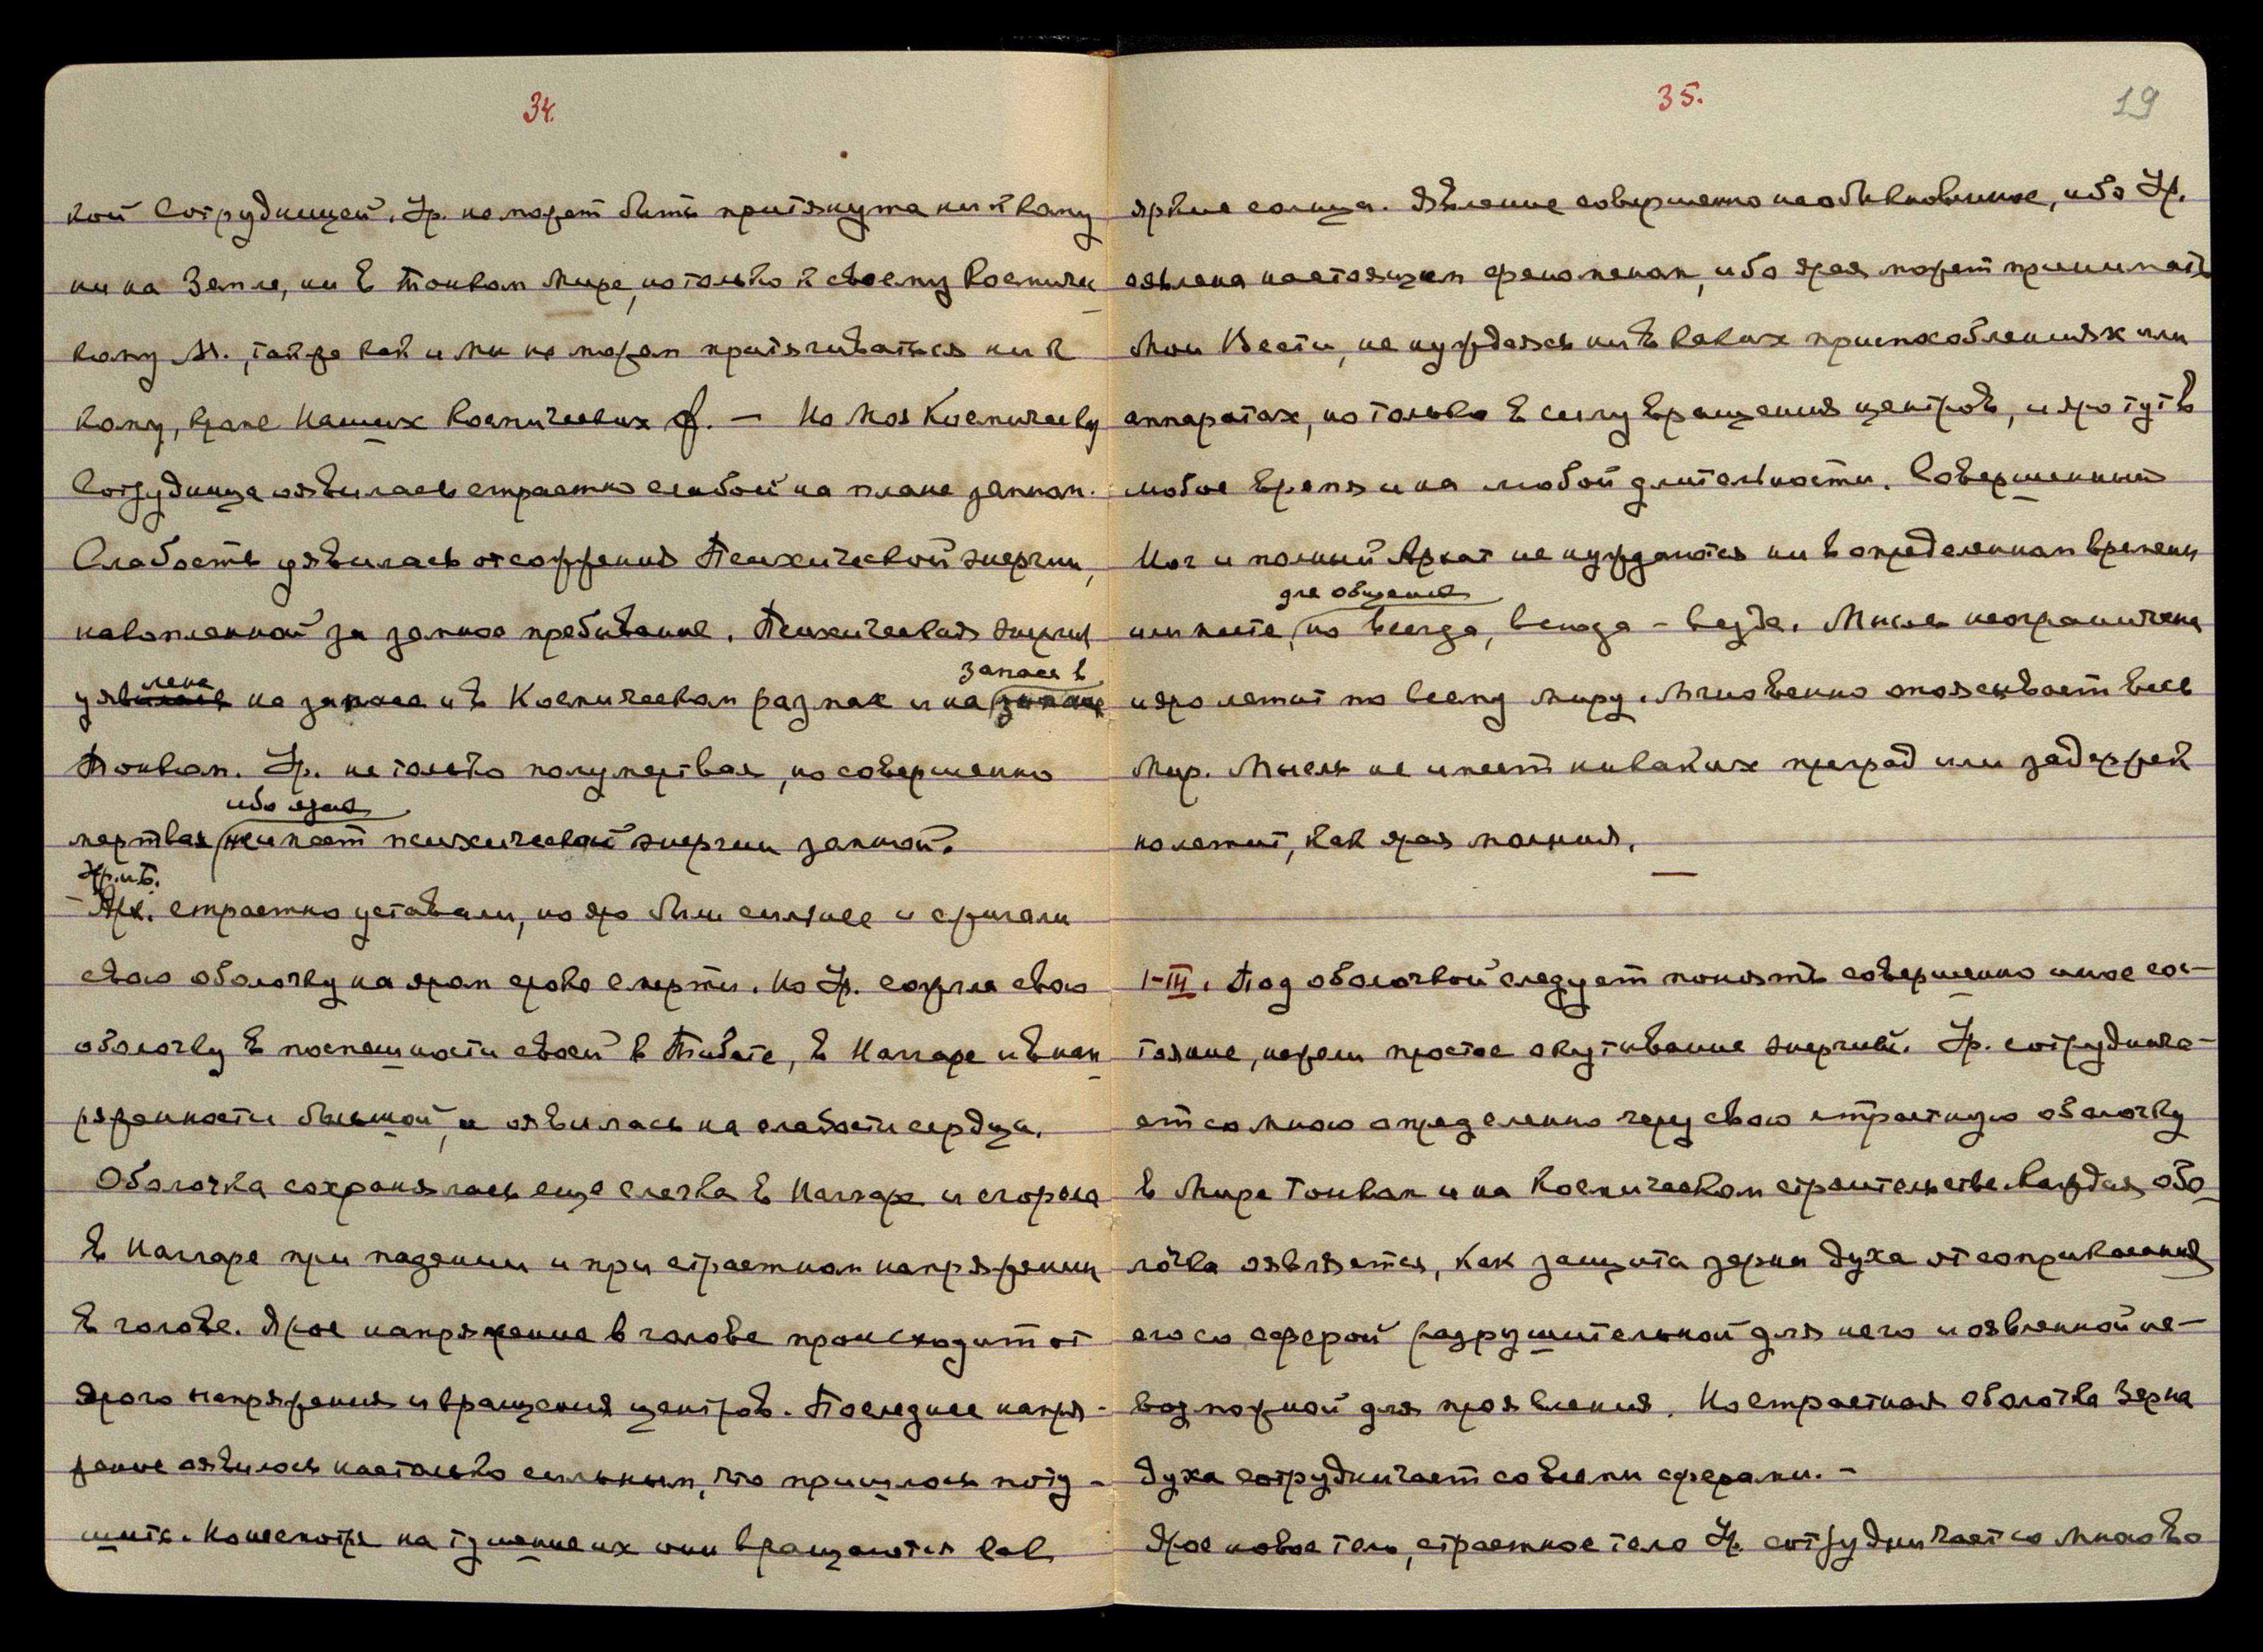 34.
кой Сотрудницей. Ур. не может быть притянута ни к кому
ни на Земле, ни в Тонком Мире, но только к своему Космиче
кому М., также как и Мы не можем притягиваться ни к
кому, кроме Наших Космических ф. — Но Моя Космическу
Сотрудница оявилась страстно слабой на плане земном.
Слабость уявилась от сожжения Психической энергии,
накопленной за земное пребывание. Психическая энергия
лена запасе в
уявилась не запасе и в Космическом размахе и на запасе
Тонком. Ур. не только полумертвая, но совершенно
ибо ярая
мертвая не имеет психической энергии земной.
Ур. и Б.
– Арх. страстно уставали, но яро были сильнее и сжигали
свою оболочку на яром сроке смерти. Но Ур. сожгла свою
оболочку в поспешности своей в Тибете, в Наггаре и в нап
ряженности большой, и оявилась на слабости сердца.
Оболочка сохранялась еще слегка в Наггаре и сгорела
в Наггаре при падении и при страстном напряжении
в голове. Ярое напряжение в голове происходит от
ярого напряжения и вращения центров. Последнее напря-
жение оявилось настолько сильным, что пришлось поту-
шить. Несмотря на тушение их они вращаются как
35.
19
яркие солнца. Явление совершенно необыкновенное, ибо Ур.
оявлена настоящим феноменом, ибо ярая может принимать
Мои Вести, не нуждаясь ни в каких приспособлениях или
аппаратах, но только в силу вращения центров, и яро тут в
любое время и на любой длительности. Совершенный
Йог и полный Архат не нуждаются ни в определенном времени
для общения
или месте, но всегда, всюда – везде. Мысль неограничена
и яро летит по всему миру. Мгновенно опоясывает весь
Мир. Мысль не имеет никаких преград или задержек
но летит, как ярая молния.
1–III. Под оболочкой следует понять совершенно иное сос-
тояние, нежели простое окутывание энергией. Ур. сотруднича-
ет со мною определенно через свою страстную оболочку
в Мире Тонком и на Космическом строительстве. Каждая обо
лочка оявляется, как защита зерна духа от соприкасания
его со сферой разрушительной для него и оявленной не-
возможной для проявления. Но страстная оболочка Зерна
духа сотрудничает со всеми сферами. –
Ярое новое тело, страстное тело Ур. сотрудничает со Мною во